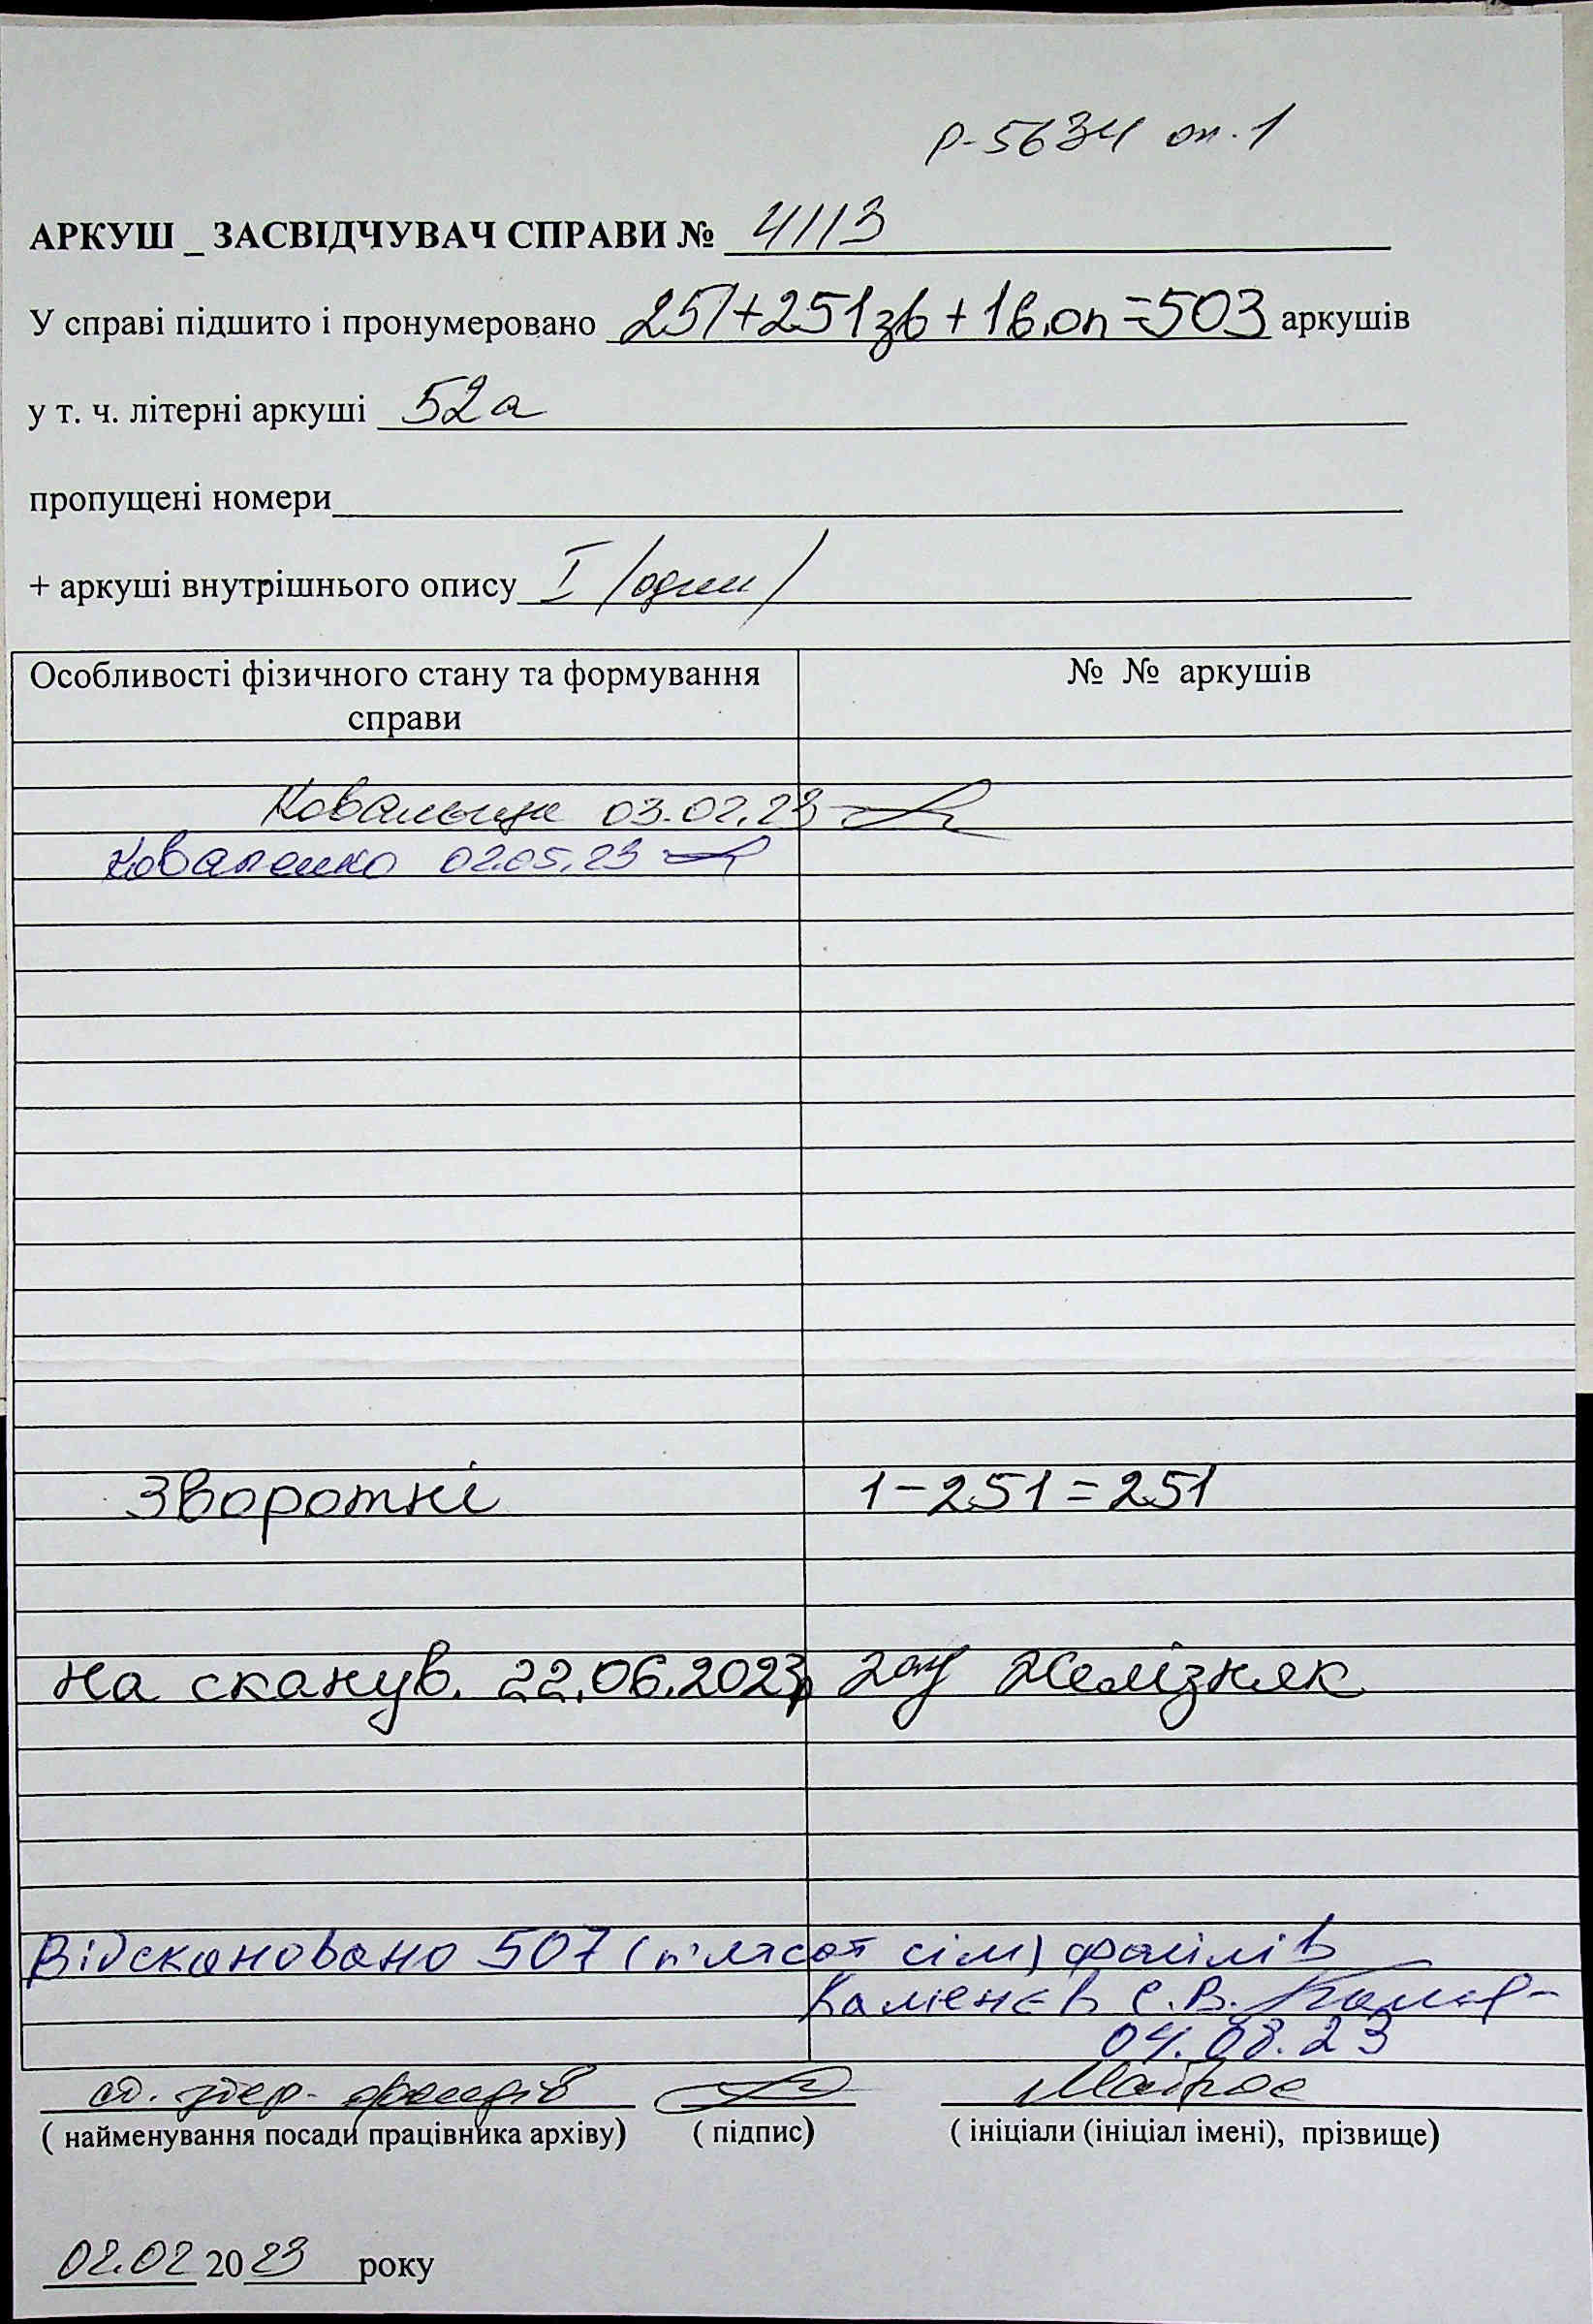 Р-5634 оп. 1
АРКУШ _ ЗАСВІДЧУВАЧ СПРАВИ № 4113
У справі підшито і пронумеровано 251+251зв+1в.оп=503 аркушів
у т. ч. літерні аркуші 52а
пропущені номери
+ аркуші внутрішнього опису I /один/
Особливості фізичного стану та формування справи
№ № аркушів
03.02.23
Коваленко 02.05.23
Зворотні 1-251=251
на сканув. 22.06.2023р Желізняк
Відскановано 507 (п'ятсот сім) файлів
Каменєв С.В.
04.08.23
фондів
( найменування посади працівника архіву) ( підпис) ( ініціали (ініціал імені), прізвище)
02.02 2023 року